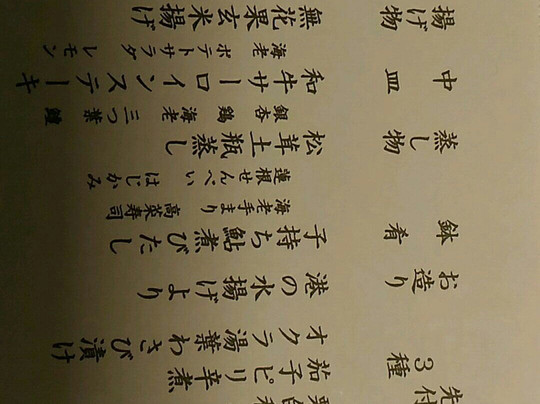 先付
3種
茄子ピリ辛煮
オクラ湯葉わさび漬け
お造り 港の水揚げより
鉢肴 子持ち鮎煮びたし
海老手まり 高菜寿司
蓮根せんべい はじかみ
蒸し物 松茸土瓶蒸し
銀杏 鶏 海老 三つ葉 鱧
中皿 和牛サーロインステーキ
海老 ポテトサラダ レモン
揚げ物 無花果玄米揚げ